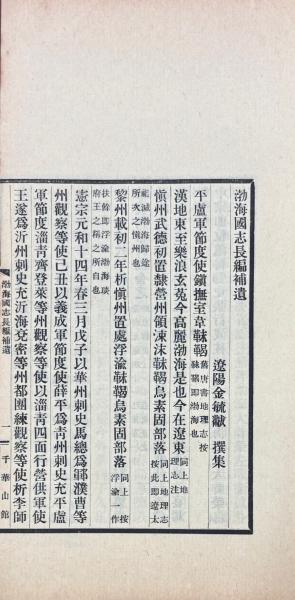 渤海國志長編補遺
遼陽金毓黻 撰集
平盧軍節度使鎮撫室韋靺鞨舊唐書地理志按靺鞨即渤海也
漢地東至樂浪玄菟今高麗渤海是也今在遼東同上地理志注
愼州武德初置隸營州領涑沫靺鞨烏素固部落同上地理志按此即遼太
祖滅渤海歸途所次之愼州也
黎州載初二年析愼州置處浮渝靺鞨烏素固部落同上按浮渝一作
扶餘即浮渝海琰府王之稱之所自也
憲宗元和十四年春三月戊子以華州刺史馬總爲鄆濮曹等
州觀察等使己丑以義成軍節度使薛平爲青州刺史充平盧
軍節度淄青齊登萊等州觀察等使以淄青四面行營供軍使
王遂爲沂州刺史充沂海兗密等州都團練觀察等使析李師
渤海國志長編補遺
一
千華山館